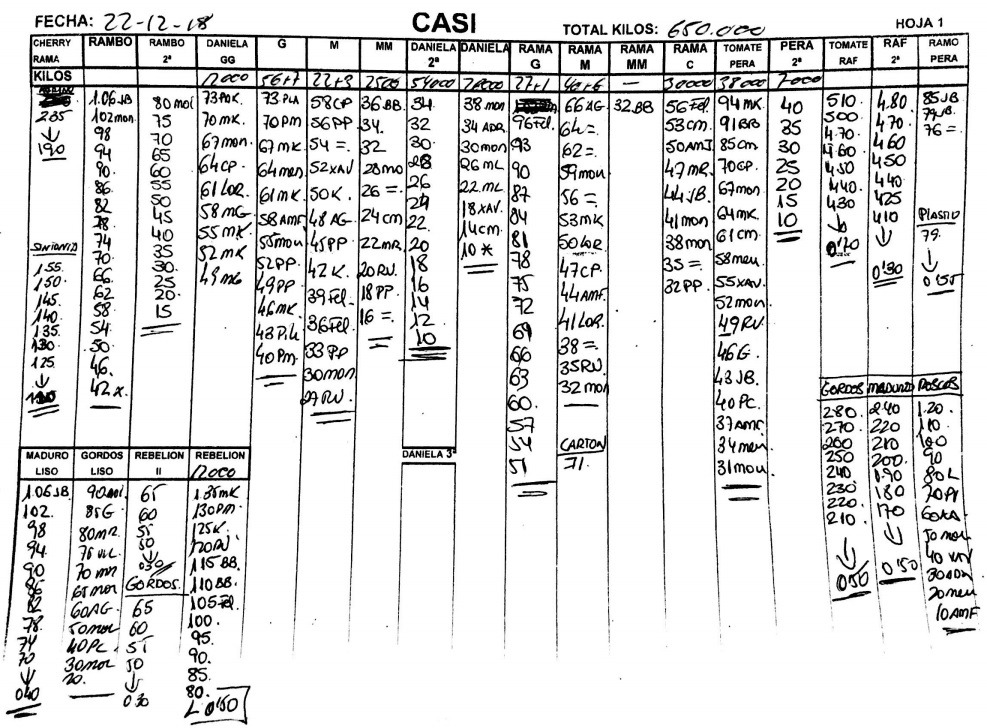 FECHA: 22-12-18 CASI TOTAL KILOS: 650.000 HOJA 1
CHERRY RAMA
RAMBO
RAMBO 2ª
DANIELA GG
G
M
MM
DANIELA 2ª
DANIELA
RAMA G
RAMA M
RAMA MM
RAMA C
TOMATE PERA
PERA 2ª
TOMATE RAF
RAF 2ª
RAMO PERA
KILOS 12000 56+7 22+3 2500 54000 7000 27+1 40+6 — 30000 38000 7000
285
↓
190
1.06 JB
102 mon
98
94
90
86
82
78
74
70
66
62
58
54
50
46
42 x
80 moi
75
70
65
60
55
50
45
40
35
30
25
20
15
70 mK
67 mon
64 CP
61 LOR
58 MG
55 mK
52 mK
49 MG
70 Pm
67 mK
64 mon
61 mK
58 AMF
55 mou
52 PP
49 PP
46 mK
40 Pm
58 CP
56 PP
54 =
52 XAV
50 K
48 AG
45 PP
42 K
39 Fel
36 Fel
33 PP
30 mon
27 RV
36 BB
34
32
28 mo
26 =
24 cm
22 MR
20 RV
18 PP
16 =
34
32
30
28
26
24
22
20
18
16
14
12
10
38 mon
34 ADR
30 mon
26 ML
22 ML
18 XAV
14 cm
10 *
96 Fel
93
90
87
84
81
78
75
72
69
66
63
60
57
54
51
66 AG
64 =
62 =
59 mou
56 =
53 mK
50 LOR
47 CP
44 AMF
41 LOR
38 =
35 RV
32 mon
CARTON
71
32 BB
56 Fel
53 cm
50 AMJ
47 MR
44 JB
41 mon
38 mon
35 =
32 PP
94 mK
91 BB
85 cm
70 CP
67 mon
64 mK
61 cm
58 meu
55 XAV
52 mon
49 RV
46 G
43 JB
40 PC
37 AMF
34 men
31 mou
40
35
30
25
20
15
10
510
500
470
460
450
440
430
↓
0'70
4.80
4.70
4.60
450
440
425
410
↓
0'30
85 JB
79 JB
76 =
PLASTICO
79
↓
0'55
155
150
145
140
135
130
125
↓
GORDOS
280
270
260
250
240
230
220
210
↓
0'50
MADUROS
240
220
210
200
190
180
170
↓
0'50
1.20
110
100
90
80 L
50 mon
40 XAV
20 meu
10 AMF
MADURO LISO
GORDOS LISO
REBELION II
REBELION
12000
DANIELA 3ª
1.06 JB
102
98
94
90
86
82
78
74
70
↓
040
85 G
80 MR
70 mn
65 mon
60 AG
50 mon
40 PC
30 mon
20
65
60
55
50
↓
030
GORDOS
65
60
55
50
↓
030
135 mK
130 Pm
125 K
120 RV
115 BB
110 BB
105 Fel
100
95
90
85
80
0'50